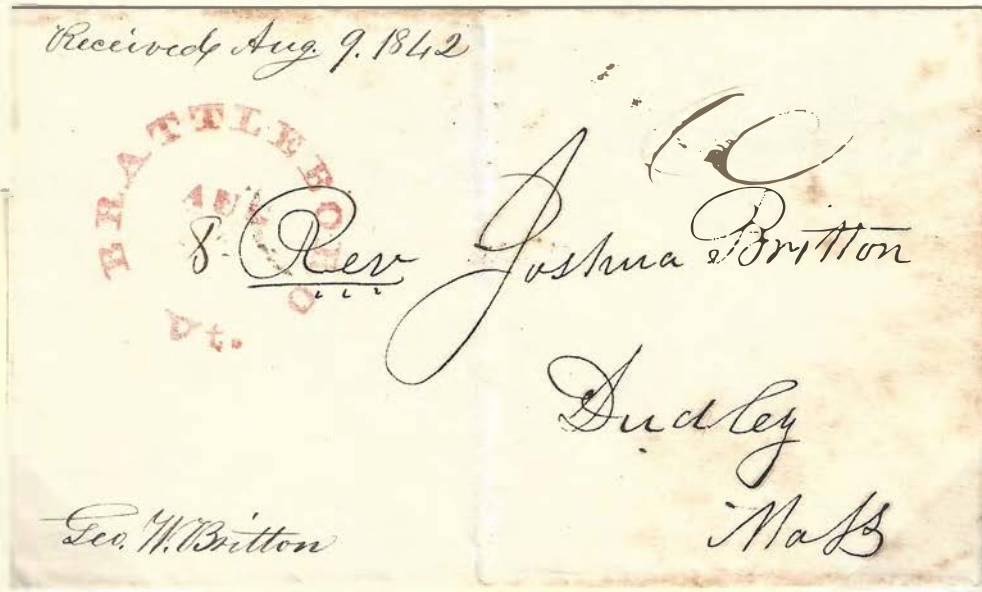 Received Aug. 9. 1842
BRATTLEBORO
AUG
8
Vt.
10
Rev Joshua Britton
Dudley
Mass
Geo. W. Britton